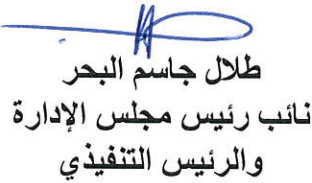 طلال جاسم البحر
نائب رئيس مجلس الإدارة
والرئيس التنفيذي